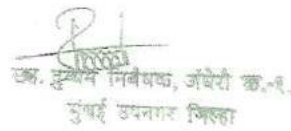 सह. दुय्यम निबंधक, अंधेरी क्र.-१,
मुंबई उपनगर जिल्हा